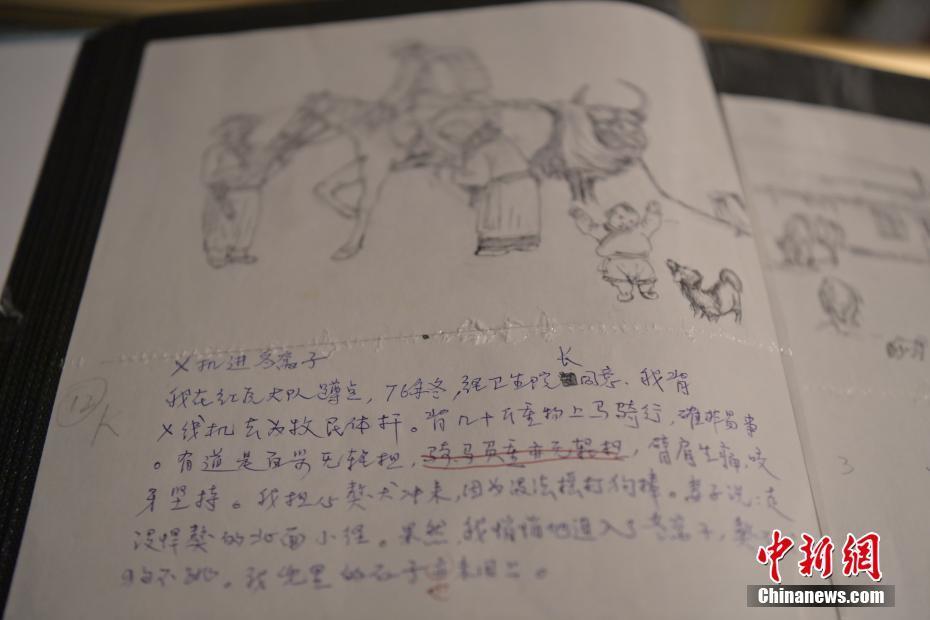 X机进冬窝子
长
⑫ 我在红瓦大队蹲点，76年冬，经卫生院同意，我背
X线机去为牧民体。背几十斤重物上马骑行，非易事
。有道是百无轻担，骑马负重亦无轻担，臂肩生痛，咬
牙坚持。我担心獒犬冲来，因为没法摆打狗棒。子说：走
没悍獒的北面小径。果然，我悄悄地进入了窝子，獒
狗不。我兜里的石子
3
中新网
Chinanews.com